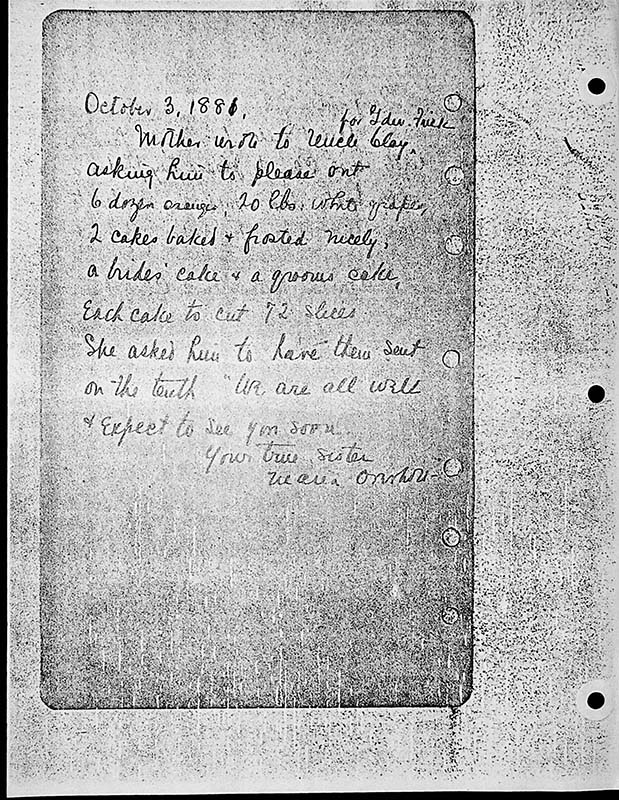 October 3, 1881.
for Edw. Frick
Mother wrote to Uncle Clay,
asking him to please get
6 dozen oranges, 20 lbs. white grapes,
2 cakes baked & frosted nicely,
a brides' cake & a grooms cake,
Each cake to cut 72 slices
She asked him to have them sent
on the tenth "We are all well
& Expect to see you soon.
Your true sister